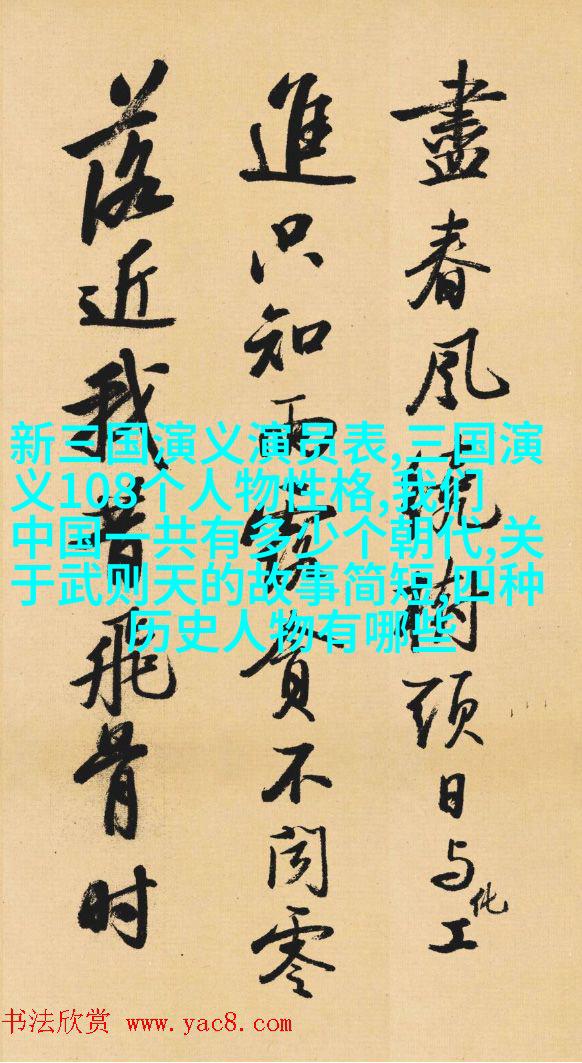 盡春風繞樹頭日与化工
進只知雨露貪不聞零
落近我昔飛骨时
新三国演义演员表,三国演
义108个人物性格,我们
中国一共有多少个朝代,关
于武则天的故事简短,四种
历史人物有哪些
书法欣赏 www.yac8.com